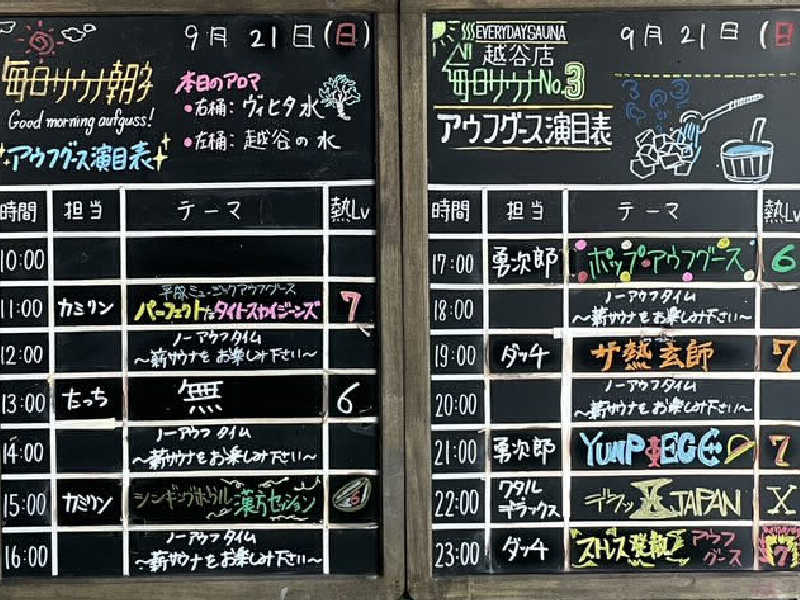 9月21日(日)
毎日サウナ朝子
Good morning aufguss!
アウフグース演目表
本日のアロマ
・右桶：ヴィヒタ水
・左桶：越谷の水
時間 担当 テーマ 熱Lv
10:00
11:00 カミリン 平成ミュージックアウフグース
パーフェクトだタイトスカイジーンズ 7
12:00 ノーアウフタイム
～薪サウナをお楽しみ下さい～
13:00 たっち 無 6
14:00 ノーアウフタイム
～薪サウナをお楽しみ下さい～
15:00 カミリン シンギングボウル 漢方セッション 6
16:00 ノーアウフタイム
～薪サウナをお楽しみ下さい～
EVERYDAYSAUNA
越谷店
毎日サウナNo.3
アウフグース演目表
9月21日(日
時間 担当 テーマ 熱Lv
17:00 勇次郎 ポップ・アウフグース 6
18:00 ノーアウフタイム
～薪サウナをお楽しみ下さい～
19:00 ダッチ サ熱玄師 7
20:00 ノーアウフタイム
～薪サウナをお楽しみ下さい～
21:00 勇次郎 YUMP EGE 7
22:00 ワタル
デラックス デラッX JAPAN X
23:00 ダッチ ストレス発散 アウフ
グース 7